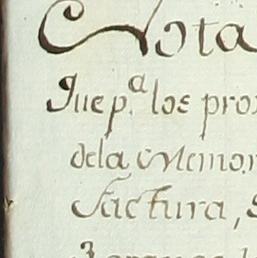 Nota
Que p.ª los pro
dela Memor
Factura,